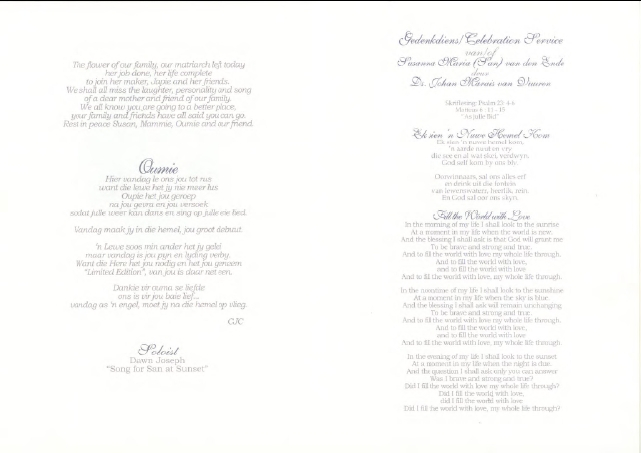 The flower of our family, our matriarch left today
her job done, her life complete
to join her maker, Japie and her friends.
We shall all miss the laughter, personality and song
of a dear mother and friend of our family.
We all know you are going to a better place,
your family and friends have all said you can go.
Rest in peace Susan, Mammie, Oumie and our friend.
Oumie
Hier vandag le ons jou tot rus
want die lewe het jy nie meer lus
Oupie het jou geroep
na jou gevra en jou versoek
sodat julle weer kan dans en sing op julle eie lied.
Vandag maak jy in die hemel, jou groot debuut.
'n Lewe soos min ander het jy gelei
maar vandag is jou pyn en lyding verby.
Want die Here het jou nodig en het jou gewen
"Limited Edition", van jou is daar net een.
Dankie vir ouma se liefde
ons is vir jou baie lief...
vandag as 'n engel, moet jy na die hemel op vlieg.
CJC
Soloist
Dawn Joseph
"Song for San at Sunset"
Gedenkdiens/Celebration Service
van/of
Susanna Maria (San) van den Ende
deur
Ds. Johan Marais van Vuuren
Skriflesing: Psalm 23: 4-6
Matteus 6 : 13 - 15
"Ons Julle Bid"
Ek sien 'n Nuwe Hemel Kom
Ek sien 'n nuwe hemel kom,
'n aarde nuut en vry
die see en al wat skei, verdwyn.
God self kom by ons bly.
Oorwinnaars, sal ons alles erf
en drink uit die fontein
van lewenswaters, heerlik, rein.
En God sal oor ons skyn.
Fill the World with Love
In the morning of my life I shall look to the sunrise
At a moment in my life when the world is new.
And the blessing I shall ask is that God will grant me
To be brave and strong and true.
And to fill the world with love my whole life through.
And to fill the world with love,
and to fill the world with love
And to fill the world with love, my whole life through.
In the noontime of my life I shall look to the sunshine
At a moment in my life when the sky is blue
And the blessing I shall ask will remain unchanging
To be brave and strong and true.
And to fill the world with love my whole life through.
And to fill the world with love,
and to fill the world with love
And to fill the world with love, my whole life through.
In the evening of my life I shall look to the sunset
At a moment in my life when the night is due.
And the question I shall ask only you can answer
Was I brave and strong and true?
Did I fill the world with love my whole life through?
Did I fill the world with love,
did I fill the world with love
Did I fill the world with love, my whole life through?